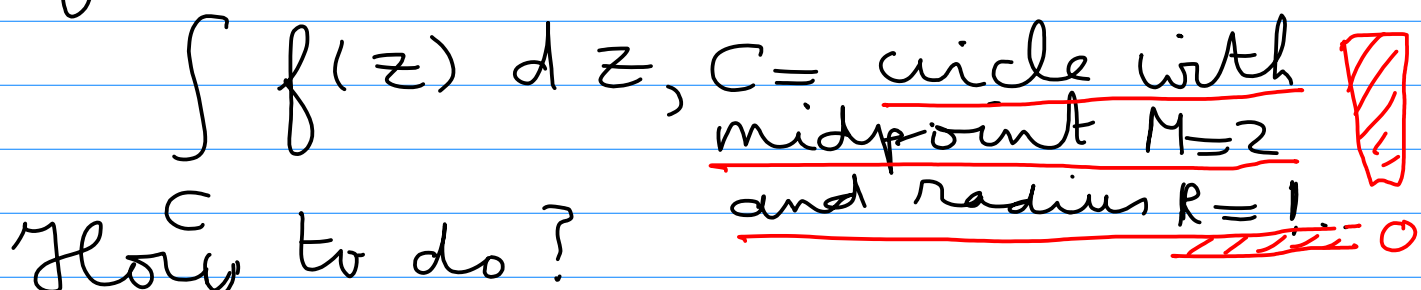 ∫ f(z) dz, C = circle with
midpoint M=2
C and radius R=1
How to do?